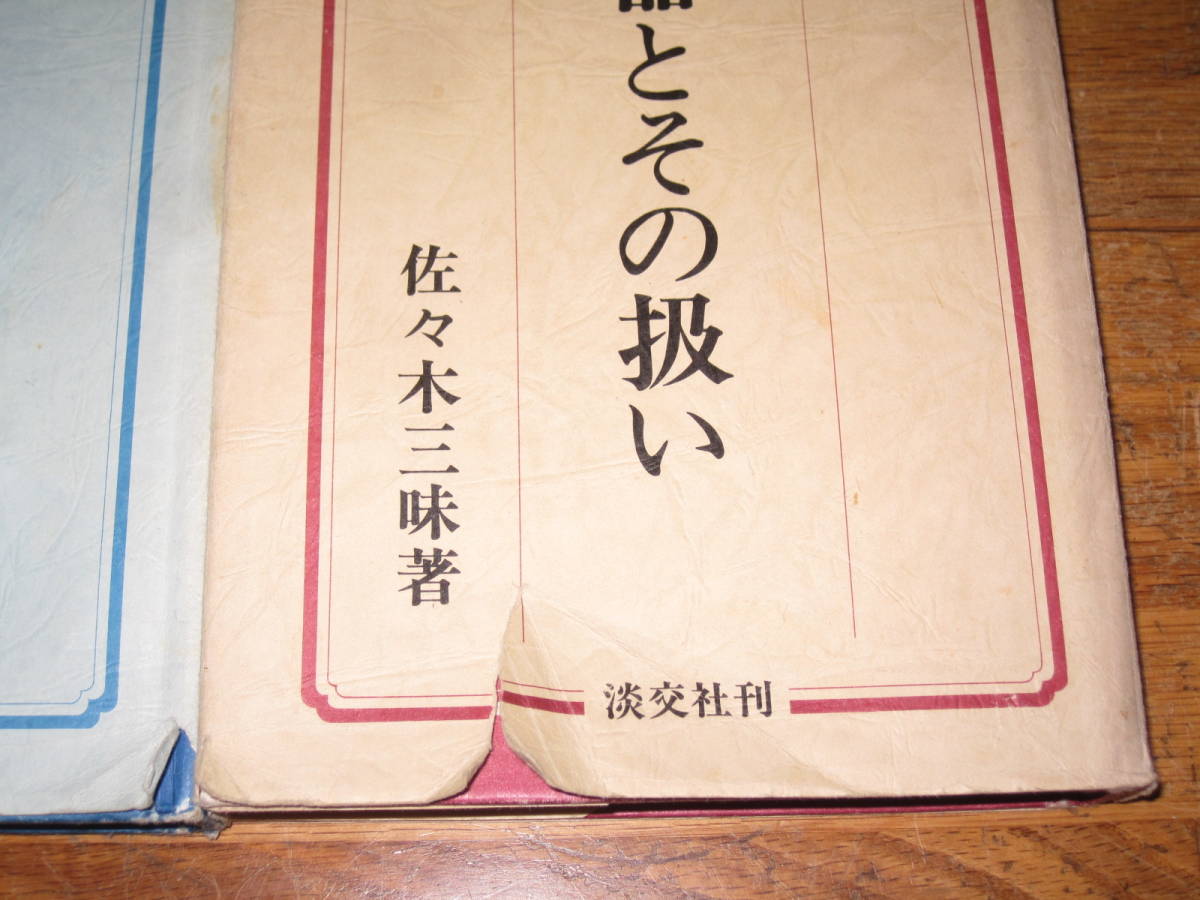 とその扱い
佐々木三味著
淡交社刊